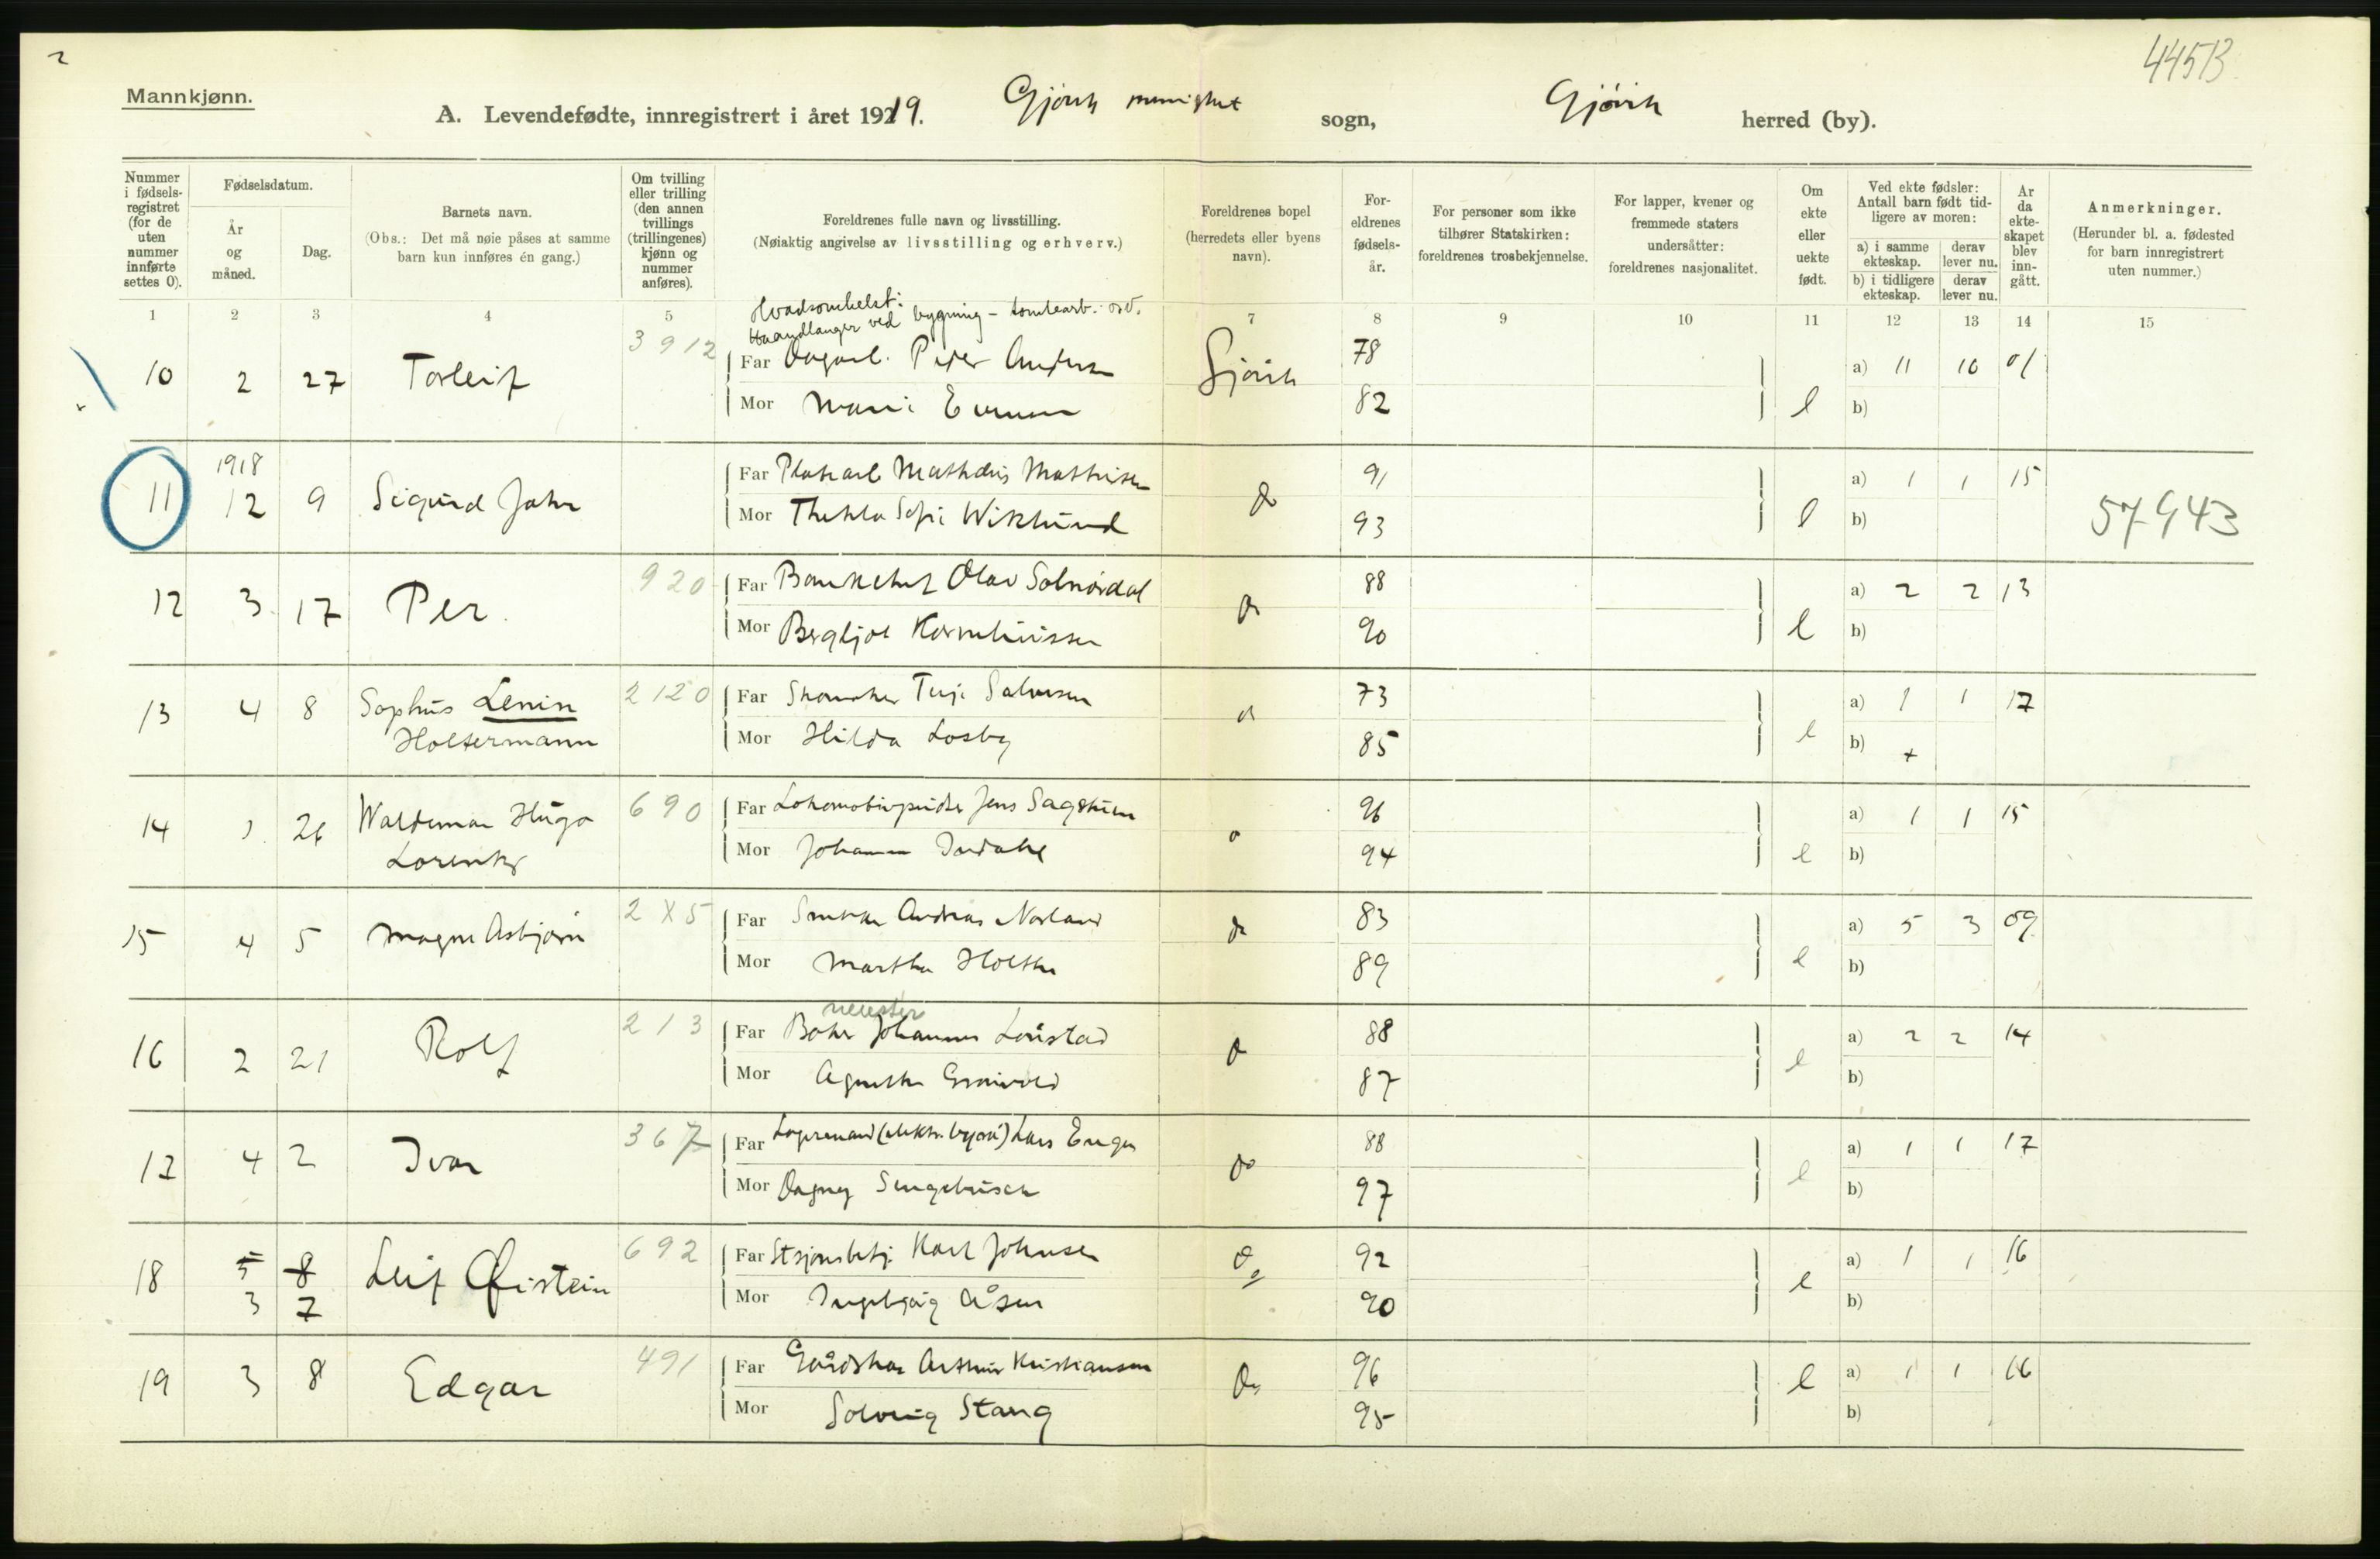 2
4451B
Mannkjønn.
A. Levendefødte, innregistrert i året 1919. Gjøvik sogn, Gjøvik herred (by).
Nummer i fødsels-registret (for de uten nummer innførte settes 0).
Fødselsdatum.
År og måned.
Dag.
Barnets navn.
(Obs.: Det må nøie påses at samme barn kun innføres én gang.)
Om tvilling eller trilling (den annen tvillings (trillingenes) kjønn og nummer anføres).
Foreldrenes fulle navn og livsstilling.
(Nøiaktig angivelse av livsstilling og erhverv.)
Foreldrenes bopel (herredets eller byens navn).
For-eldrenes fødsels-år.
For personer som ikke tilhører Statskirken: foreldrenes trosbekjennelse.
For lapper, kvener og fremmede staters undersåtter: foreldrenes nasjonalitet.
Om ekte eller uekte født.
Ved ekte fødsler: Antall barn født tid-ligere av moren:
a) i samme ekteskap.
derav lever nu.
b) i tidligere ekteskap.
derav lever nu.
År da ekte-skapet blev inn-gått.
Anmerkninger.
(Herunder bl. a. fødested for barn innregistrert uten nummer.)
1 2 3 4 5 7 8 9 10 11 12 13 14 15
Hvadsomhelst:
Haandlanger ved bygning - tomtearb. osv.
10 2 27 Torleif 3912 Far Dagarb. Peder Andersen Gjøvik 78 a) 11 10 01
Mor Marie Evensen 82 e b)
11 1918 12 9 Sigurd John Far Mathæus Mathisen do 91 a) 1 1 15
Mor Thekla Sofie Wiklund 93 e b) 57943
12 3 17 Per 920 Far Bankchef Olav Solnørdal do 88 a) 2 2 13
Mor Bergljot Korneliussen 90 e b)
13 4 8 Sophus Lenin Holtermann 2120 Far Skomaker Terje Salvesen do 73 a) 1 1 17
Mor Hilda Losby 85 e b) +
14 1 26 Waldemar Hugo Lorentz 690 Far Jens Sagstuen 96 a) 1 1 15
Mor Johanne 94 e b)
15 4 5 Magne Asbjørn 2X5 Far Andreas Norland do 83 a) 5 3 09
Mor Martha Holthe 89 e b)
16 2 21 Rolf 213 Far Baker mester Johannes Lønstad do 88 a) 2 2 14
Mor Agnethe 87 e b)
17 4 2 Ivar 367 Far Lars Enger do 88 a) 1 1 17
Mor Dagny 97 e b)
18 5 8 3 7 Leif Øistein 692 Far Stsjonsbetj. Karl Johnsen do 92 a) 1 1 16
Mor Ingebjørg Åsen 90 e b)
19 3 8 Edgar 491 Far Gårdskar Arthur Kristiansen do 96 e a) 1 1 16
Mor Solveig Stang 95 b)